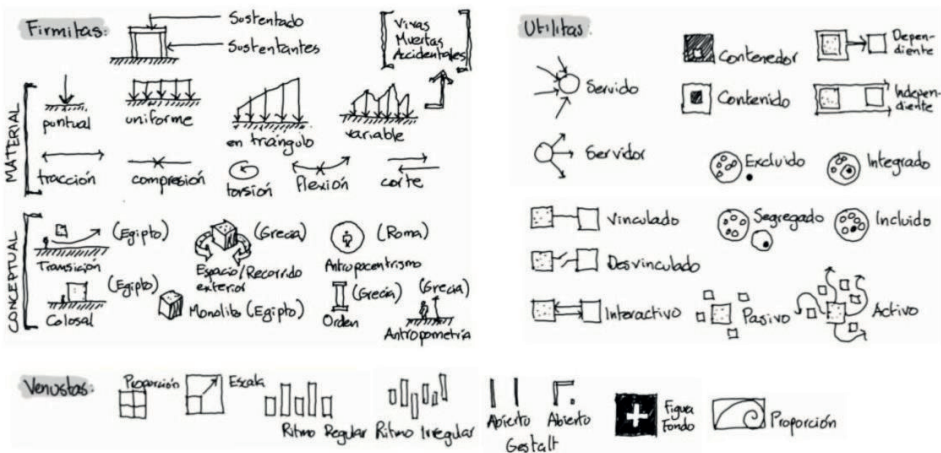 Firmitas:
Sustentado
Sustentantes
Vivas
Muertas
Accidentales
MATERIAL
puntual
uniforme
en triángulo
variable
tracción
compresión
torsión
flexión
corte
CONCEPTUAL
Transición
(Egipto)
Espacio/Recorrido
exterior
(Grecia)
Antropocentrismo
(Roma)
Colosal
(Egipto)
Monolito (Egipto)
Orden
(Grecia)
Antropometría
(Grecia)
Utilitas:
Servido
Contenedor
Depen-
diente
Contenido
Indepen-
diente
Servidor
Excluido
Integrado
Vinculado
Segregado
Incluido
Desvinculado
Interactivo
Pasivo
Activo
Venustas:
Proporción
Escala
Ritmo Regular
Ritmo Irregular
Abierto
Abierto
Gestalt
Figura
Fondo
Proporción